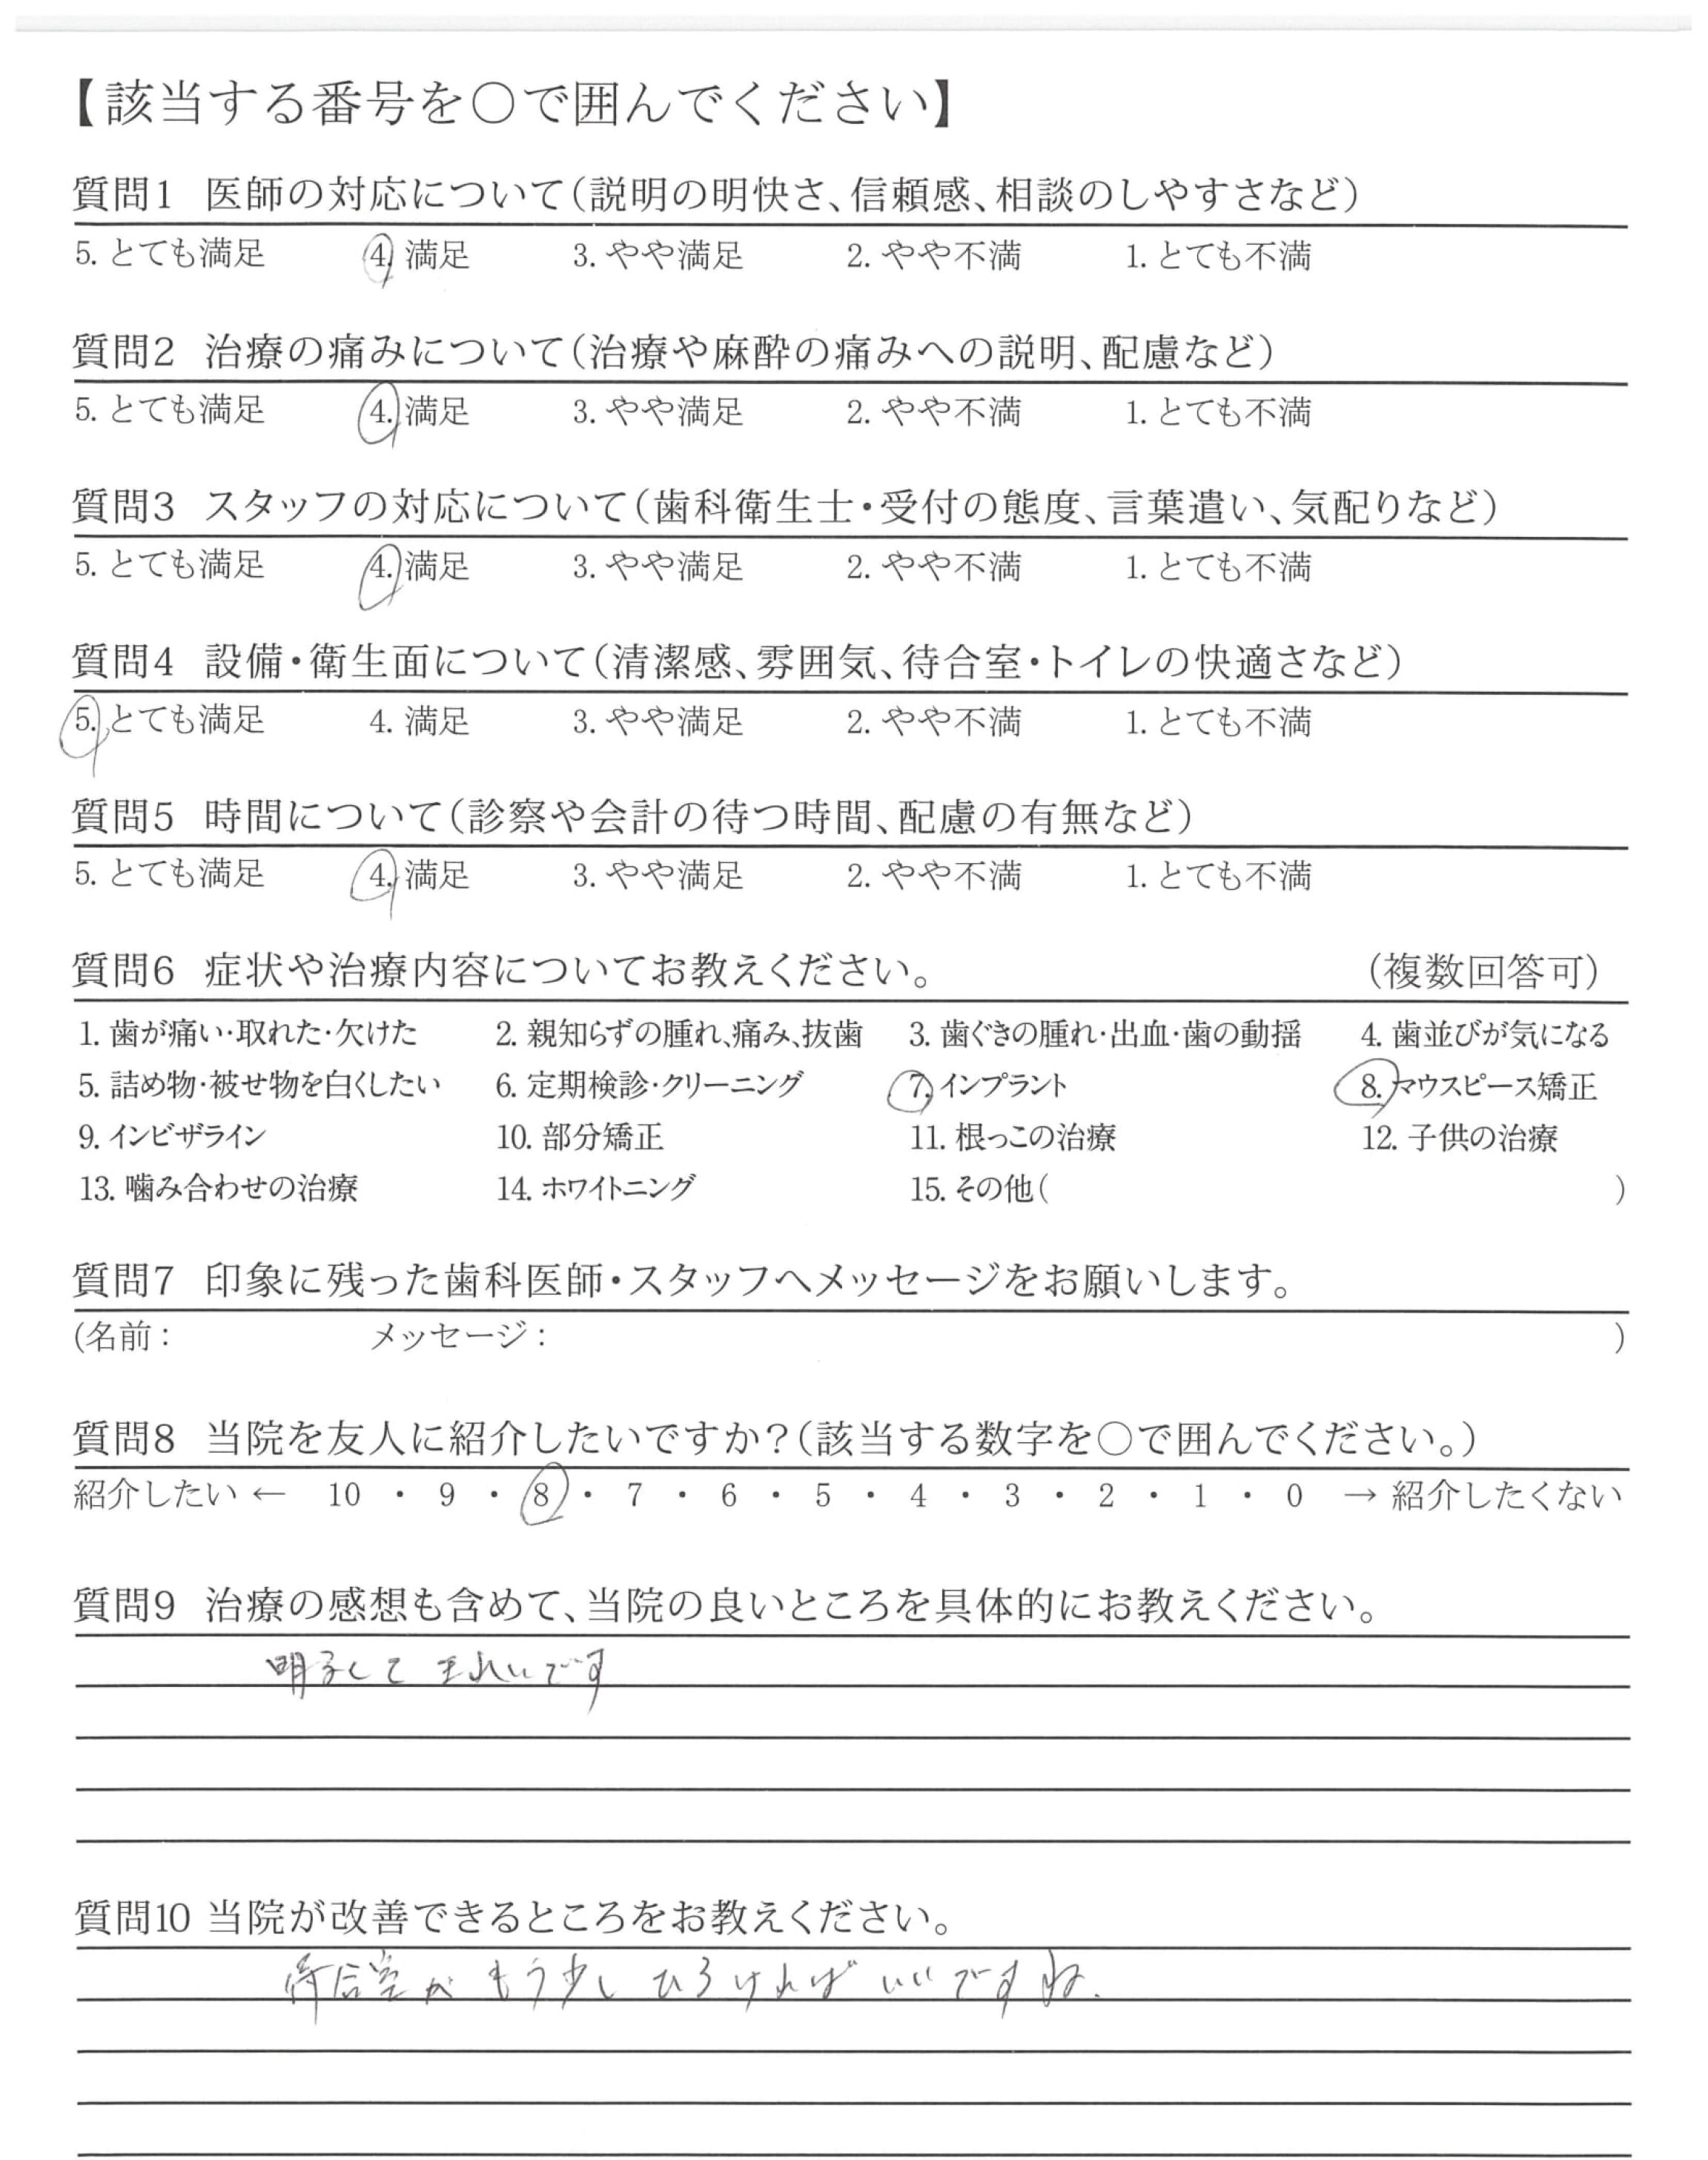 【該当する番号を○で囲んでください】
質問1 医師の対応について（説明の明快さ、信頼感、相談のしやすさなど）
5. とても満足 4. 満足 3. やや満足 2. やや不満 1. とても不満
質問2 治療の痛みについて（治療や麻酔の痛みへの説明、配慮など）
5. とても満足 4. 満足 3. やや満足 2. やや不満 1. とても不満
質問3 スタッフの対応について（歯科衛生士・受付の態度、言葉遣い、気配りなど）
5. とても満足 4. 満足 3. やや満足 2. やや不満 1. とても不満
質問4 設備・衛生面について（清潔感、雰囲気、待合室・トイレの快適さなど）
5. とても満足 4. 満足 3. やや満足 2. やや不満 1. とても不満
質問5 時間について（診察や会計の待つ時間、配慮の有無など）
5. とても満足 4. 満足 3. やや満足 2. やや不満 1. とても不満
質問6 症状や治療内容についてお教えください。 （複数回答可）
1. 歯が痛い・取れた・欠けた 2. 親知らずの腫れ、痛み、抜歯 3. 歯ぐきの腫れ・出血・歯の動揺 4. 歯並びが気になる
5. 詰め物・被せ物を白くしたい 6. 定期検診・クリーニング 7. インプラント 8. マウスピース矯正
9. インビザライン 10. 部分矯正 11. 根っこの治療 12. 子供の治療
13. 噛み合わせの治療 14. ホワイトニング 15. その他（ ）
質問7 印象に残った歯科医師・スタッフへメッセージをお願いします。
（名前： メッセージ： ）
質問8 当院を友人に紹介したいですか？（該当する数字を○で囲んでください。）
紹介したい ← 10 ・ 9 ・ 8 ・ 7 ・ 6 ・ 5 ・ 4 ・ 3 ・ 2 ・ 1 ・ 0 → 紹介したくない
質問9 治療の感想も含めて、当院の良いところを具体的にお教えください。
明るくて きれいです
質問10 当院が改善できるところをお教えください。
待合室が もう少し ひろければ いいですね.